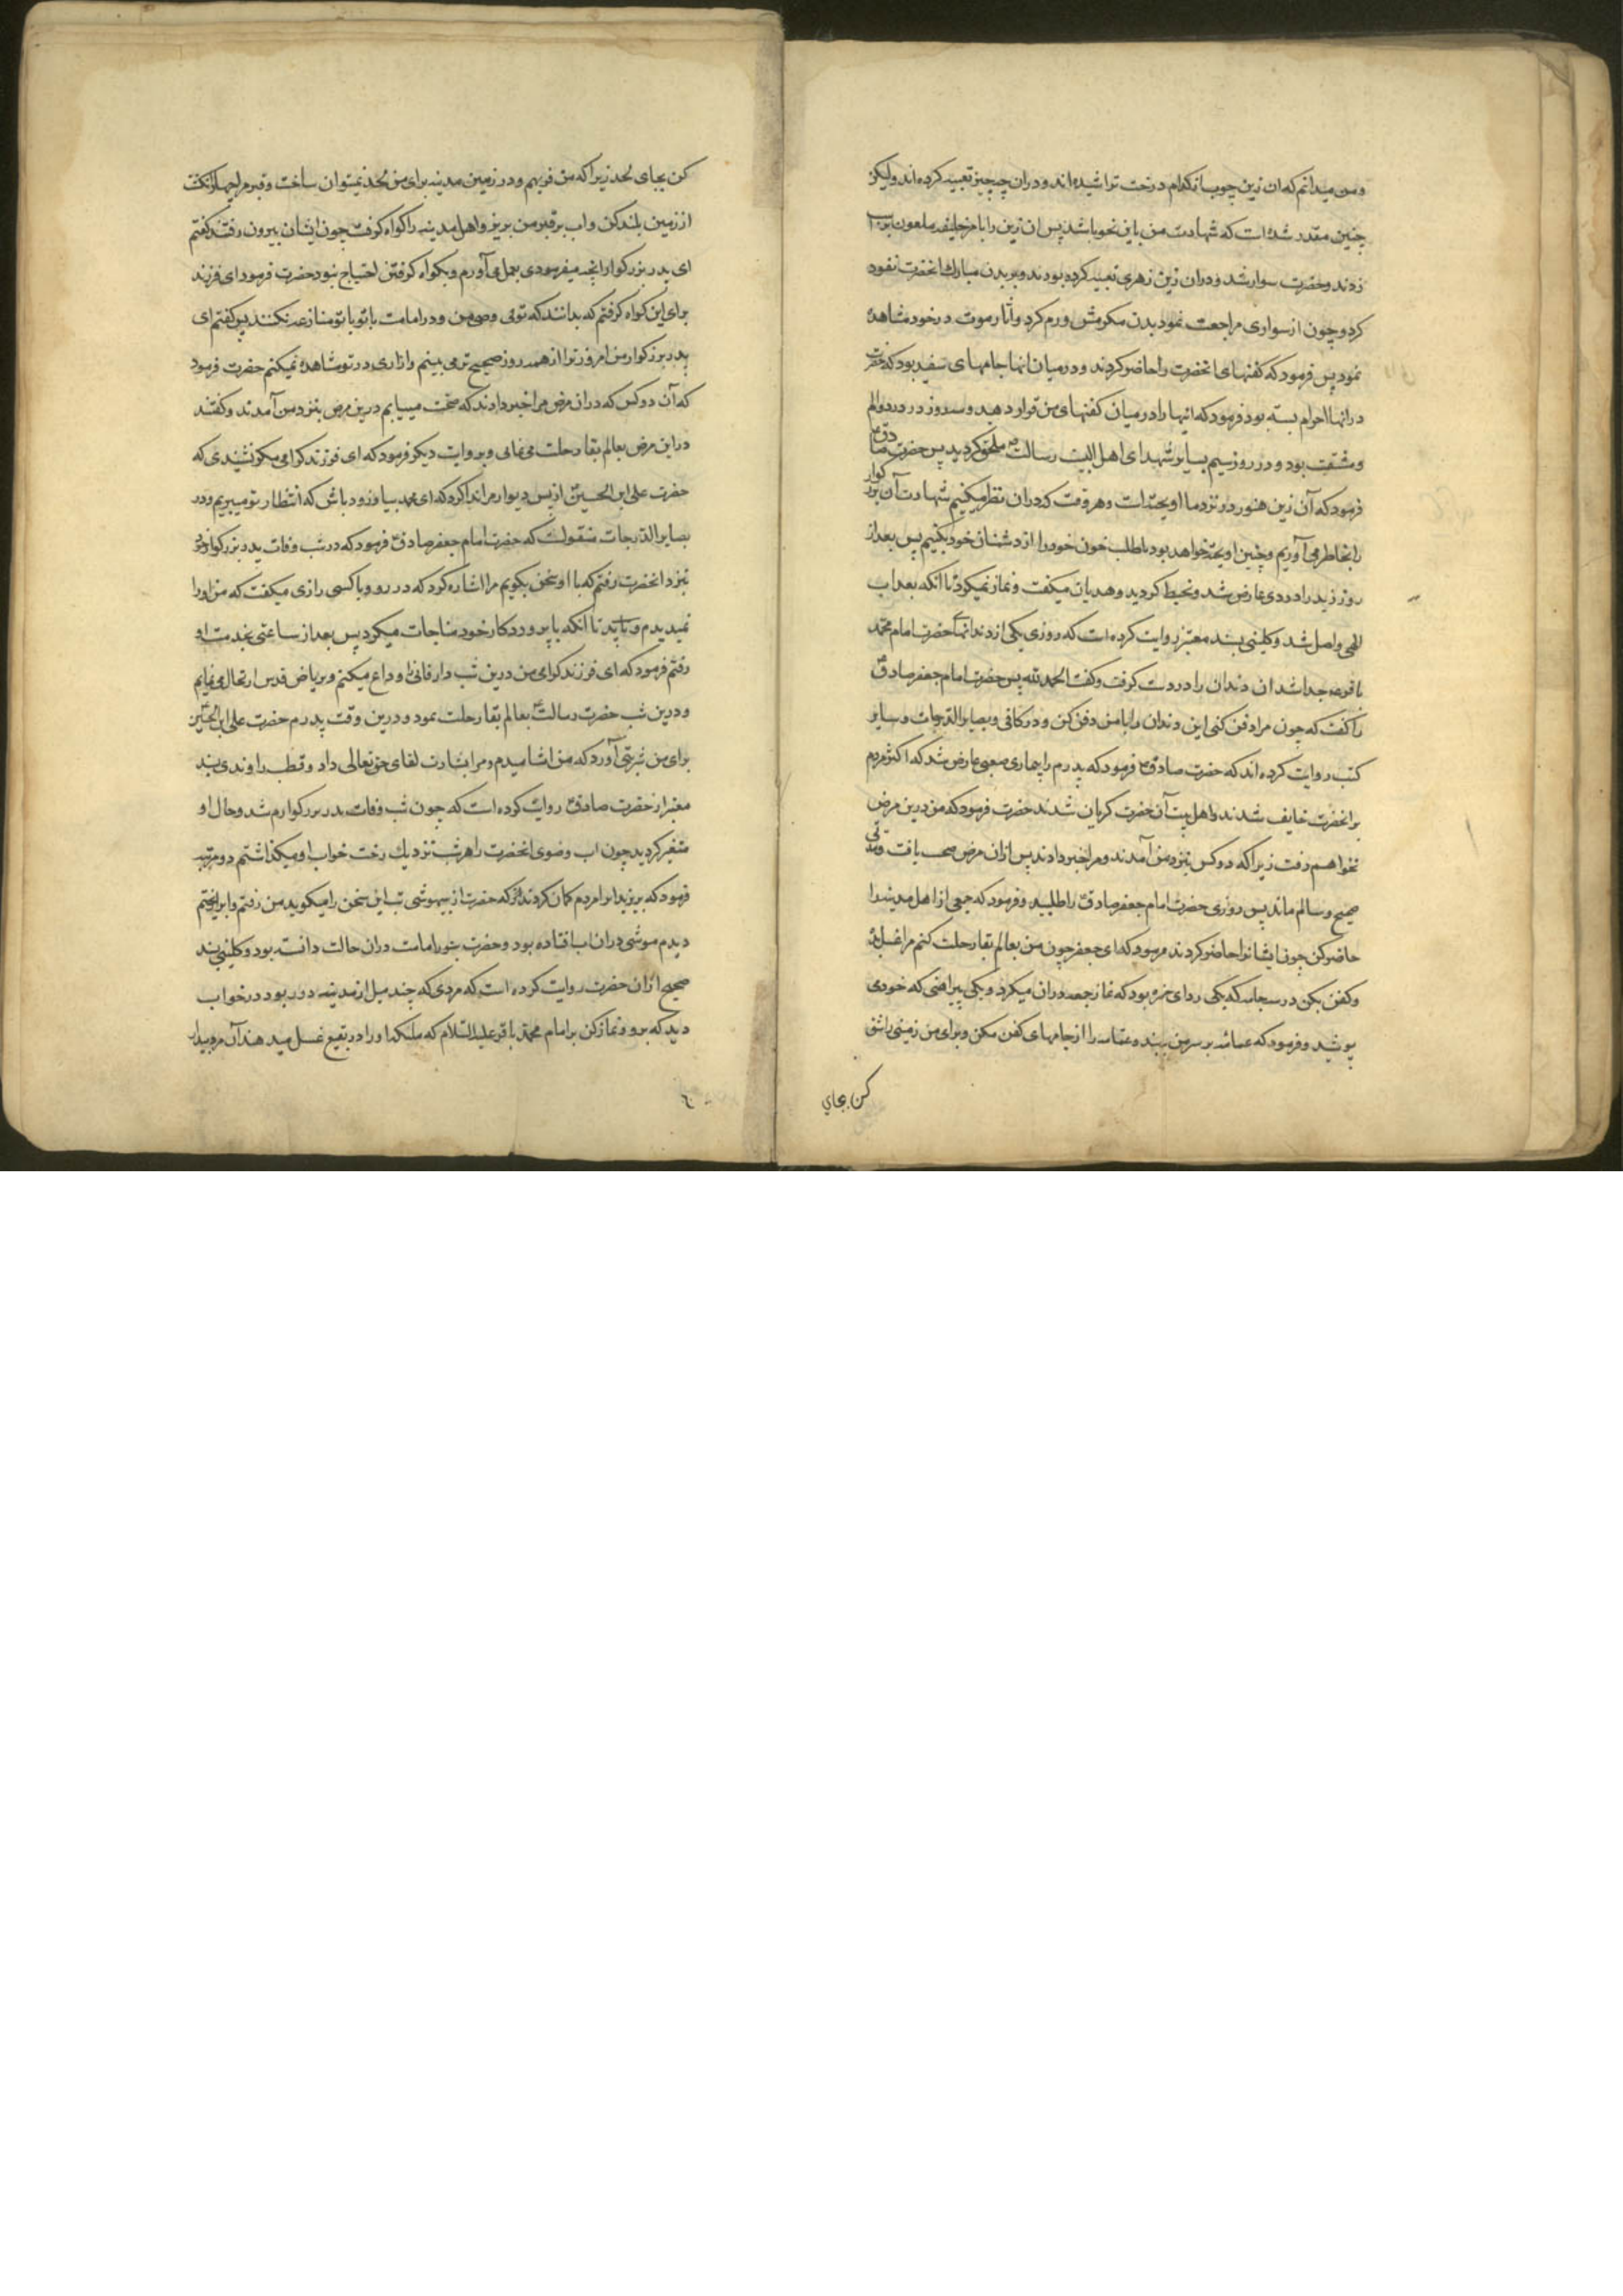 و من میدانم که ان زین چوب از کدام درخت تراشیده اند و دران چه چیز تعبیه کرده اند ولیکن
چنین مقدر شده است که شهادت من باین نحو باشد پس ان زین را بامر خلیفه ملعون بر اسب
زدند و حضرت سوار شد و دران زین زهری تعبیه کرده بودند و بر بدن مبارک انحضرت نفوذ
کرد و چون از سواری مراجعت نمود بدن مکرمش ورم کرد و آثار موت در خود مشاهده
نمود پس فرمود که کفنهای انحضرت را حاضر کردند و در میان انها جامهای سفید بود که حضرت
در انها احرام بسته بود فرمود که انها را در میان کفنهای من قرار دهید و سه روز در درد و الم
و مشقت بود و در روز سیم بسایر شهدای اهل البیت رسالت ص ملحق کردید پس حضرت صادق ع
فرمود که آن زین هنوز در نزد ما اویخته است و هر وقت که دران نظر میکنیم شهادت آن بزرکوار
را بخاطر می آوریم و چنین اویخته خواهد بود تا طلب خون خود را از دشمنان خود بکنیم پس بعد از
روز زید را دردی عارض شد و مخبط کردید و هذیان میکفت و نماز نمیکرد تا انکه بعذاب
الهی واصل شد و کلینی بسند معتبر روایت کرده است که روزی یکی از دندانهای حضرت امام محمد
باقر ع جدا شد ان دندان را در دست کرفت و کفت الحمد لله پس حضرت امام جعفر صادق ع
را کفت که چون مرا دفن کنی این دندان را با من دفن کن و در کافی و بصایر الدرجات و سایر
کتب روایت کرده اند که حضرت صادق ع فرمود که پدرم را بیماری صعبی عارض شد که اکثر مردم
بر انحضرت خایف شدند و اهل بیت آن حضرت کریان شدند حضرت فرمود که من درین مرض
نخواهم رفت زیرا که دو کس بنزد من آمدند و مرا خبر دادند پس ازان مرض صحت یافت و مدتی
صحیح و سالم ماند پس روزی حضرت امام جعفر صادق ع را طلبید و فرمود که جمعی از اهل مدینه را
حاضر کن چون ایشانرا حاضر کردند فرمود که ای جعفر چون من بعالم بقا رحلت کنم مرا غسل ده
و کفن بکن در سه جامه که یکی ردای حبره بود که نماز جمعه دران میکرد و یکی پیراهنی که خود می
پوشید و فرمود که عمامه بر سر من ببند و عمامه را از جامهای کفن مکن و برای من زمین را شق
کن بجای
کن بجای لحد زیرا که من فربهم و در زمین مدینه برای من لحد نمیتوان ساخت و قبر مرا چهار انکشت
از زمین بلند کن و اب بر قبر من بریز و اهل مدینه را کواه کرفت چون ایشان بیرون رفتند کفتم
ای پدر بزرکوار انچه میفرمودی بعمل می آورم و بکواه کرفتن احتیاج نبود حضرت فرمود ای فرزند
برای این کواه کرفتم که بدانند که توئی وصی من و در امامت با تو با تو منازعه نکنند پس کفتم ای
پدر بزرکوار من امروز ترا از همه روز صحیح تر می بینم و ازاری در تو مشاهده نمیکنم حضرت فرمود
که آن دو کس که دران مرض مرا خبر دادند که صحت مییابم درین مرض بنزد من آمدند و کفتند
در این مرض بعالم بقا رحلت می نمائی و بروایت دیکر فرمود که ای فرزند کرامی مکر نشنیدی که
حضرت علی ابن الحسین ع از پس دیوار مرا ندا کرد که ای محمد بیا و زود باش که انتظار تو میبریم و در
بصایر الدرجات منقولست که حضرت امام جعفر صادق ع فرمود که در شب وفات پدر بزرکوار خود
بنزد انحضرت رفتم که با او سخن بکویم مرا اشاره کرد که دور رو و با کسی رازی میکفت که من او را
نمیدیدم و یا آنکه با پروردکار خود مناجات میکرد پس بعد از ساعتی بخدمت او
رفتم فرمود که ای فرزند کرامی من درین شب دار فانی را وداع میکنم و بریاض قدس ارتحال می نمایم
و درین شب حضرت رسالت ص بعالم بقا رحلت نمود و درین وقت پدرم حضرت علی ابن الحسین ع
برای من شربتی آورد که من اشامیدم و مرا بشارت لقای حق تعالی داد و قطب راوندی بسند
معتبر از حضرت صادق ع روایت کرده است که چون شب وفات پدر بزرکوارم شد و حال او
متغیر کردید چون اب وضوی انحضرت را هر شب نزدیک رخت خواب او میکذاشتم دو مرتبه
فرمود که بریز ید اب را مردم کمان کردند که حضرت از بیهوشی تب این سخن را میکوید من رفتم و اب را ریختم
دیدم موشی دران اب افتاده بود و حضرت بنور امامت دران حالت دانسته بود و کلینی بسند
صحیح ازان حضرت روایت کرده است که مردی که چند میل از مدینه دور بود در خواب
دید که برو و نماز کن بر امام محمد باقر علیه السلام که ملئکه او را در بقیع غسل میدهند آن مرد بیدار